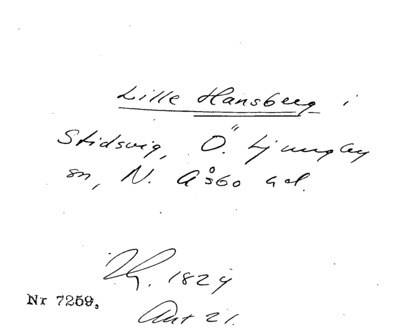 Lille Hansberg i
Stidsvig, Ö. Ljungby
sn, N. Åsbo hd.
1829
Nr 7259.
Akt 21.